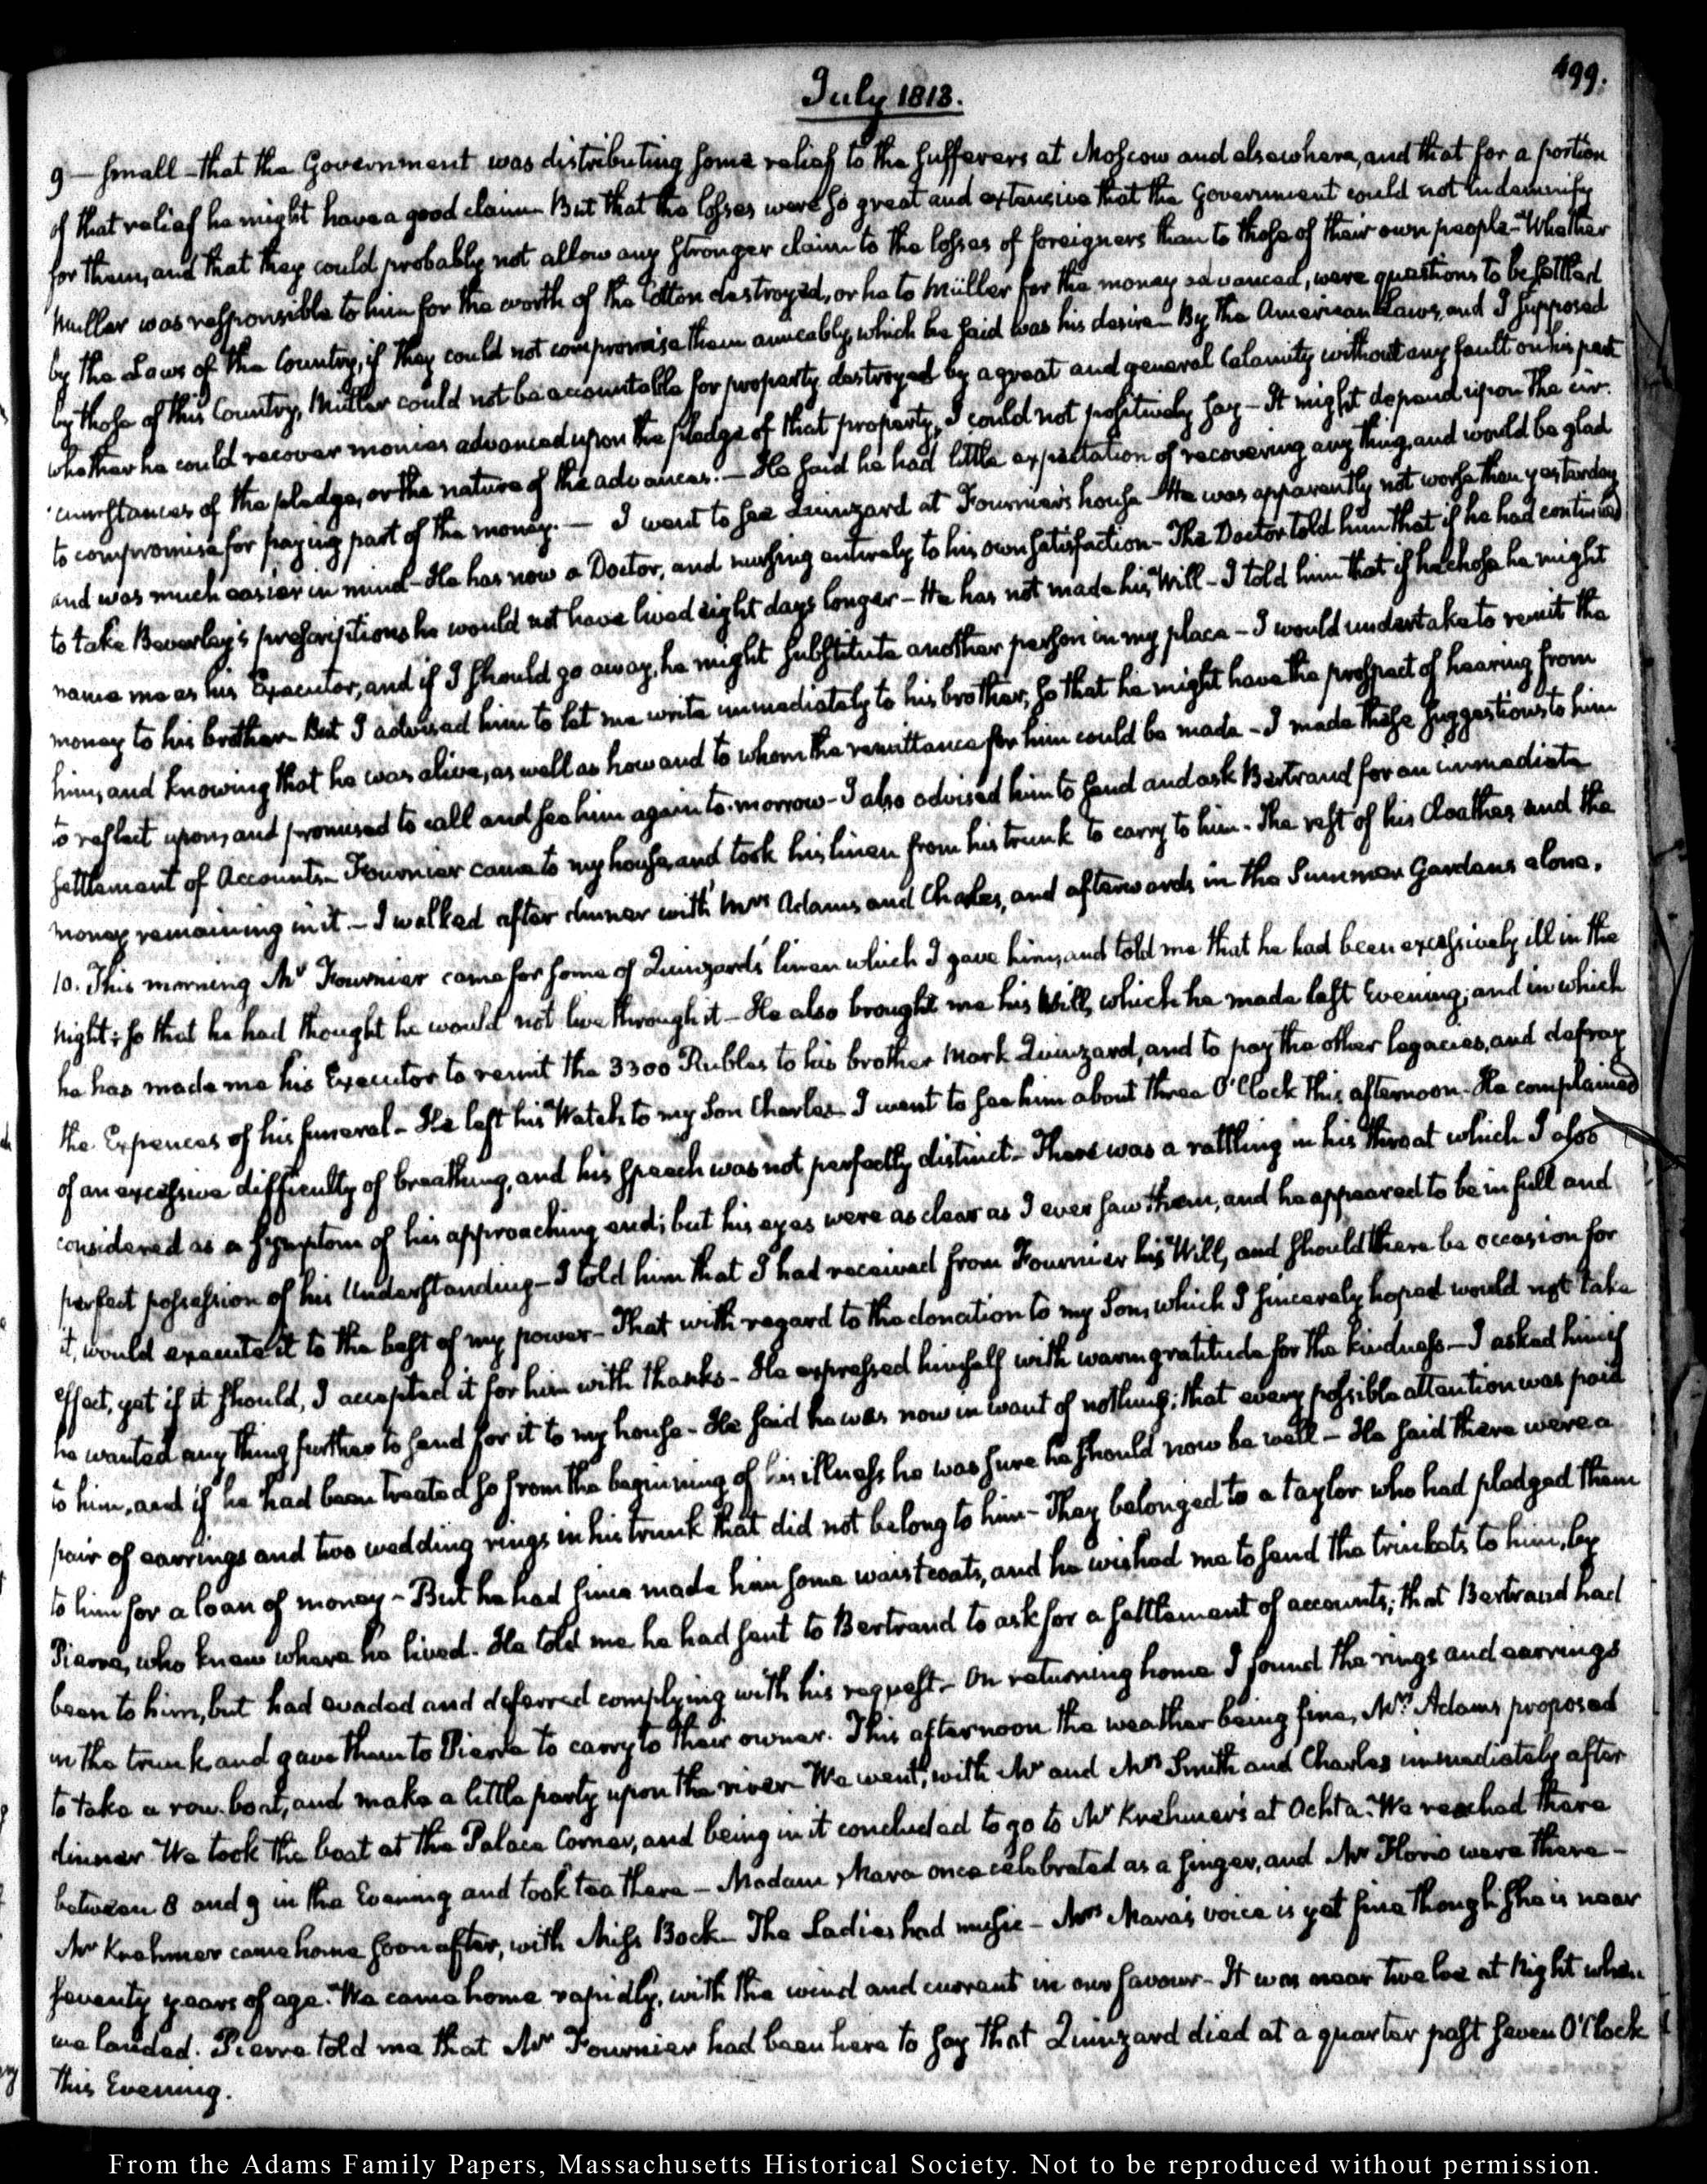 499.
July 1813.
9 — small – that the Government was distributing some relief to the sufferers at Moscow and elsewhere, and that for a portion
of that relief he might have a good claim – But that the losses were so great and extensive that the Government could not indemnify
for them, and that they could probably not allow any stronger claim to the losses of foreigners than to those of their own people – Whether
Müller was responsible to him for the worth of the Cotton destroyed, or he to Müller for the money advanced, were questions to be settled
by the Laws of the Country, if they could not compromise them amicably, which he said was his desire – By the American Laws, and I supposed
by those of this Country, Müller could not be accountable for property destroyed by a great and general Calamity without any fault on his part
whether he could recover monies advanced upon the pledge of that property, I could not positively say – It might depend upon the cir-
-cumstances of the pledge, or the nature of the advances. – He said he had little expectation of recovering any thing, and would be glad
to compromise for paying part of the money. — I went to see Quinzard at Fournier's house – He was apparently not worse than yesterday
and was much easier in mind – He has now a Doctor, and nursing entirely to his own satisfaction – The Doctor told him that if he had continued
to take Beverley's prescriptions he would not have lived eight days longer – He has not made his Will – I told him that if he chose he might
name me as his Executor, and if I should go away, he might substitute another person in my place – I would undertake to remit the
money to his brother – But I advised him to let me write immediately to his brother, so that he might have the prospect of hearing from
him, and knowing that he was alive, as well as how and to whom the remittance for him could be made – I made these suggestions to him
to reflect upon, and promised to call and see him again to-morrow – I also advised him to send and ask Bertrand for an immediate
settlement of Accounts – Fournier came to my house, and took his linen from his trunk to carry to him. The rest of his Cloathes and the
money remaining in it – I walked after dinner with Mrs Adams, and Charles, and afterwards in the Summer Gardens alone.
10. This morning Mr Fournier came for some of Quinzard's linen which I gave him, and told me that he had been excessively ill in the
Night; so that he had thought he would not live through it – He also brought me his Will, which he made last Evening; and in which
he has made me his Executor to remit the 3300 Rubles to his brother Mark Quinzard, and to pay the other legacies, and defray
the Expences of his funeral – He left his Watch to my Son Charles – I went to see him about three O'Clock this afternoon – He complained
of an excessive difficulty of breathing, and his speech was not perfectly distinct – There was a rattling in his throat which I also
considered as a symptom of his approaching end; but his eyes were as clear as I ever saw them, and he appeared to be in full and
perfect possession of his Understanding – I told him that I had received from Fournier his Will, and should there be occasion for
it, would execute it to the best of my power – That with regard to the donation to my Son, which I sincerely hoped would not take
effect, yet if it should, I accepted it for him with thanks – He expressed himself with warm gratitude for the kindness – I asked him if
he wanted any thing further to send for it to my house – He said he was now in want of nothing; that every possible attention was paid
to him, and if he had been treated so from the beginning of his illness he was sure he should now be well – He said there were a
pair of earrings and two wedding rings in his trunk that did not belong to him – They belonged to a taylor who had pledged them
to him for a loan of money – But he had since made him some waistcoats, and he wished me to send the trinkets to him, by
Pierre, who knew where he lived. He told me he had sent to Bertrand to ask for a settlement of accounts; that Bertrand had
been to him, but had evaded and deferred complying with his request – On returning home I found the rings and earrings
in the trunk, and gave them to Pierre to carry to their owner. This afternoon the weather being fine, Mrs Adams proposed
to take a row-boat, and make a little party upon the river – We went, with Mr and Mrs Smith and Charles immediately after
dinner. We took the boat at the Palace Corner, and being in it concluded to go to Mr Krehmer's at Ochta. We reached there
between 8 and 9 in the Evening and took tea there – Madam Mara once celebrated as a singer, and Mr Florio were there –
Mr Krehmer came home soon after, with Miss Bock – The Ladies had music – Mrs Mara's voice is yet fine though she is near
seventy years of age. We came home rapidly, with the wind and current in our favour – It was near twelve at Night when
we landed. Pierre told me that Mr Fournier had been here to say that Quinzard died at a quarter past seven O'Clock
this Evening.
From the Adams Family Papers, Massachusetts Historical Society. Not to be reproduced without permission.